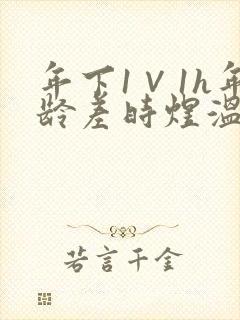 年下1V1h年
龄差时煌温
若言千金